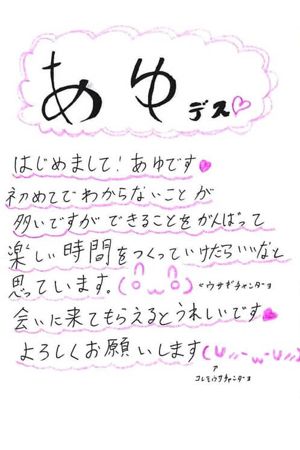 あゆデス♡
はじめまして！あゆです♥
初めてでわからないことが
多いですができることをがんばって
楽しい時間をつくっていけたらいいなと
思っています。(^・ω・^) ←ウサギチャンダヨ
会いに来てもらえるとうれしいです♥
よろしくお願いします(U//・ω・U//)
↑
コレモウサチャンダヨ